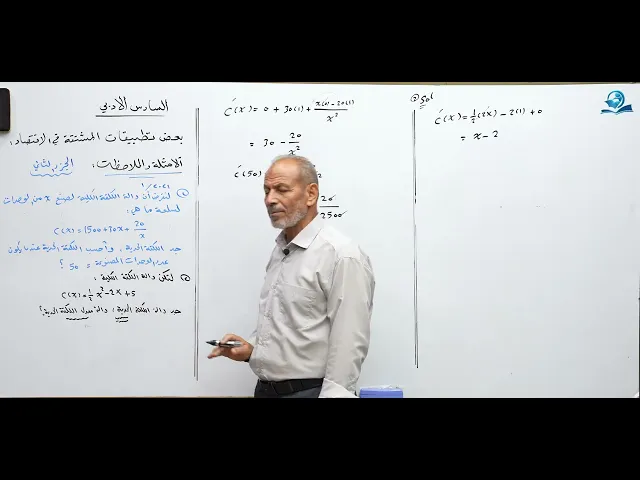 السادس الأدبي
بعض تطبيقات المشتقة في الاقتصاد:
الامثلة والملاحظات: الجزء الثاني
لتكن أن دالة الكلفة الكلية لصنع x من الوحدات
لسلعة ما هي:
C(x)=1500+30x+20/x
جد الكلفة الحدية، وأحسب الكلفة الحدية عندما يكون
عدد الوحدات المصنوعة = 50 ؟
لتكن دالة الكلفة الكلية:
C(x)=1/2 x²-2x+5
جد دالة الكلفة الحدية، دالة معدل الكلفة الحدية؟
C'(x)= 0 + 30(1) + (x(0)-20(1))/x²
= 30 - 20/x²
C'(50)
20/2500
② sol
C'(x)=1/2(2x)-2(1)+0
= x-2